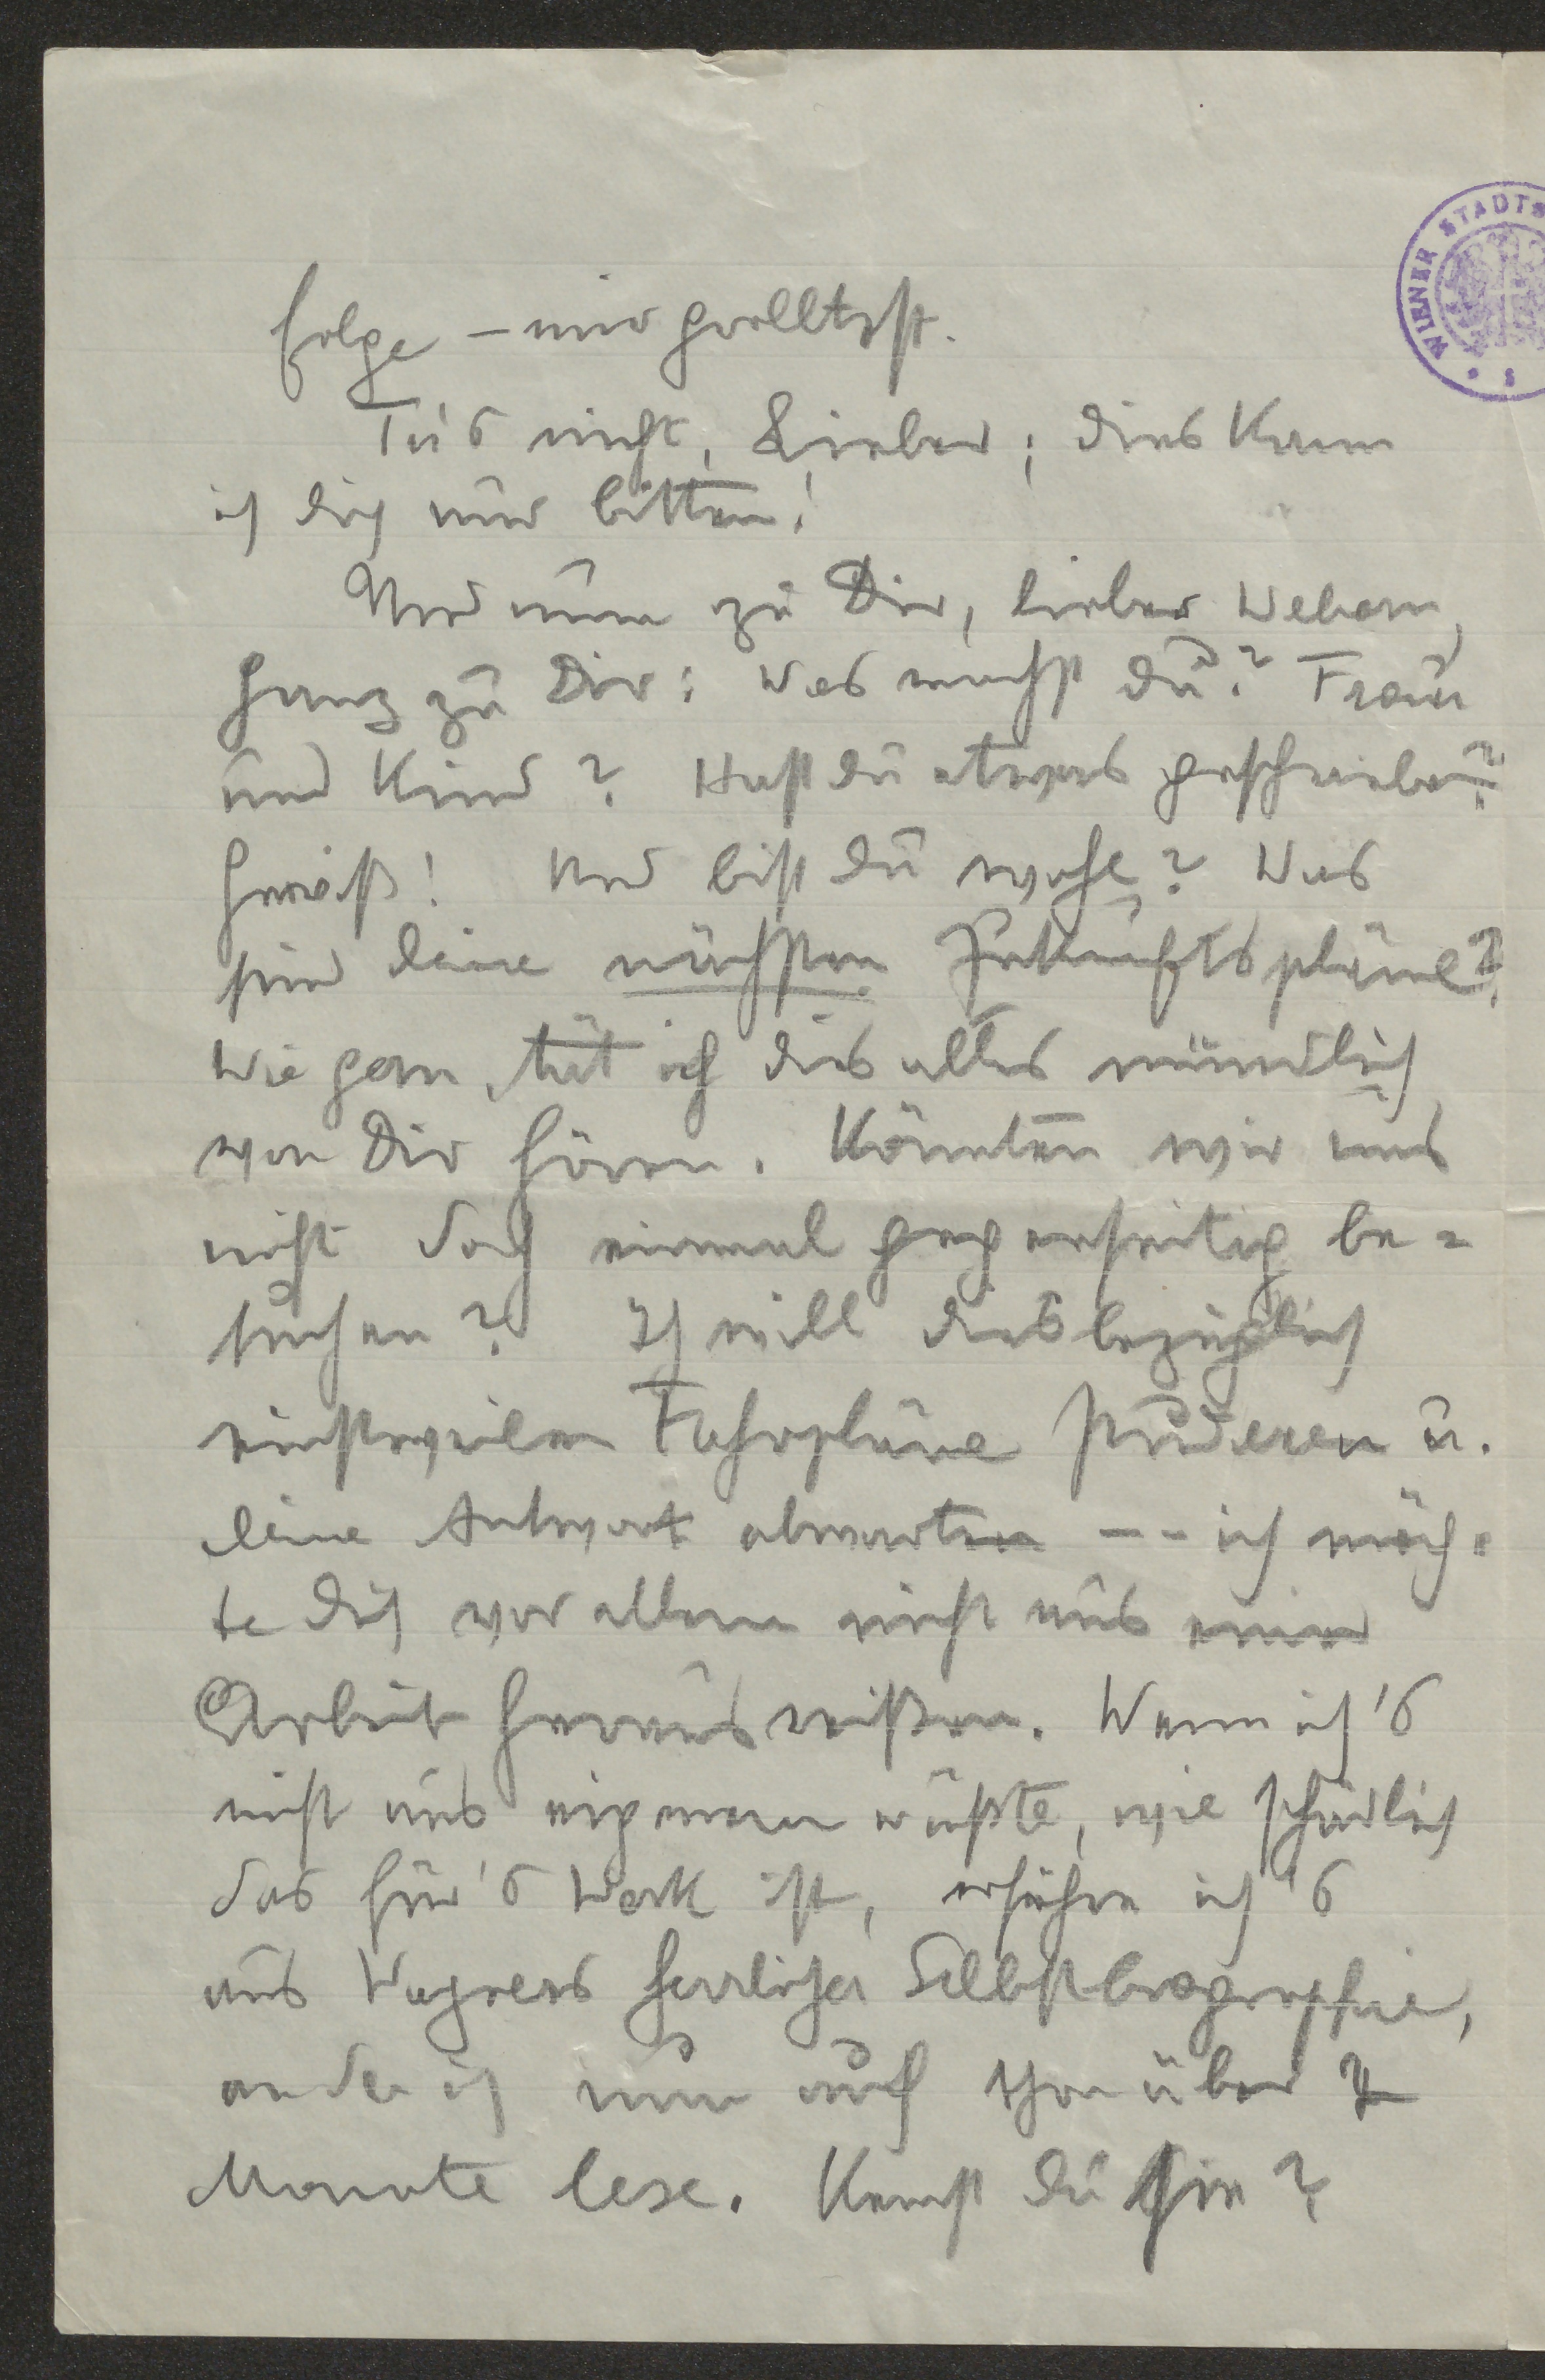 folge – mir grolltest.
Tu's nicht, Lieber; dies kann
ich dich nur bitten!
Und nun zu Dir, lieber Webern,
ganz zu Dir: Was machst du? Frau
und Kind? Hast du etwas geschrieben?
Gewiß! Und bist du wohl? Was
sind deine nächsten Zukunftspläne?
Wie gern tät ich dies alles mündlich
von Dir hören. Könnten wir uns
nicht doch einmal gegenseitig be=
suchen? Ich will diesbezüglich
einstweilen Fahrpläne studieren u.
deine Antwort abwarten -- ich möch=
te dich vor allem nicht aus einer
Arbeit herausreißen. Wenn ich's
nicht aus eigenem wüßte, wie schädlich
das für's Werk ist, erführe ich's
aus Wagners herrlicher Selbstbiographie,
an der ich nun auch schon über
Monate lese. Kennst du sie?
WIENER STADTS